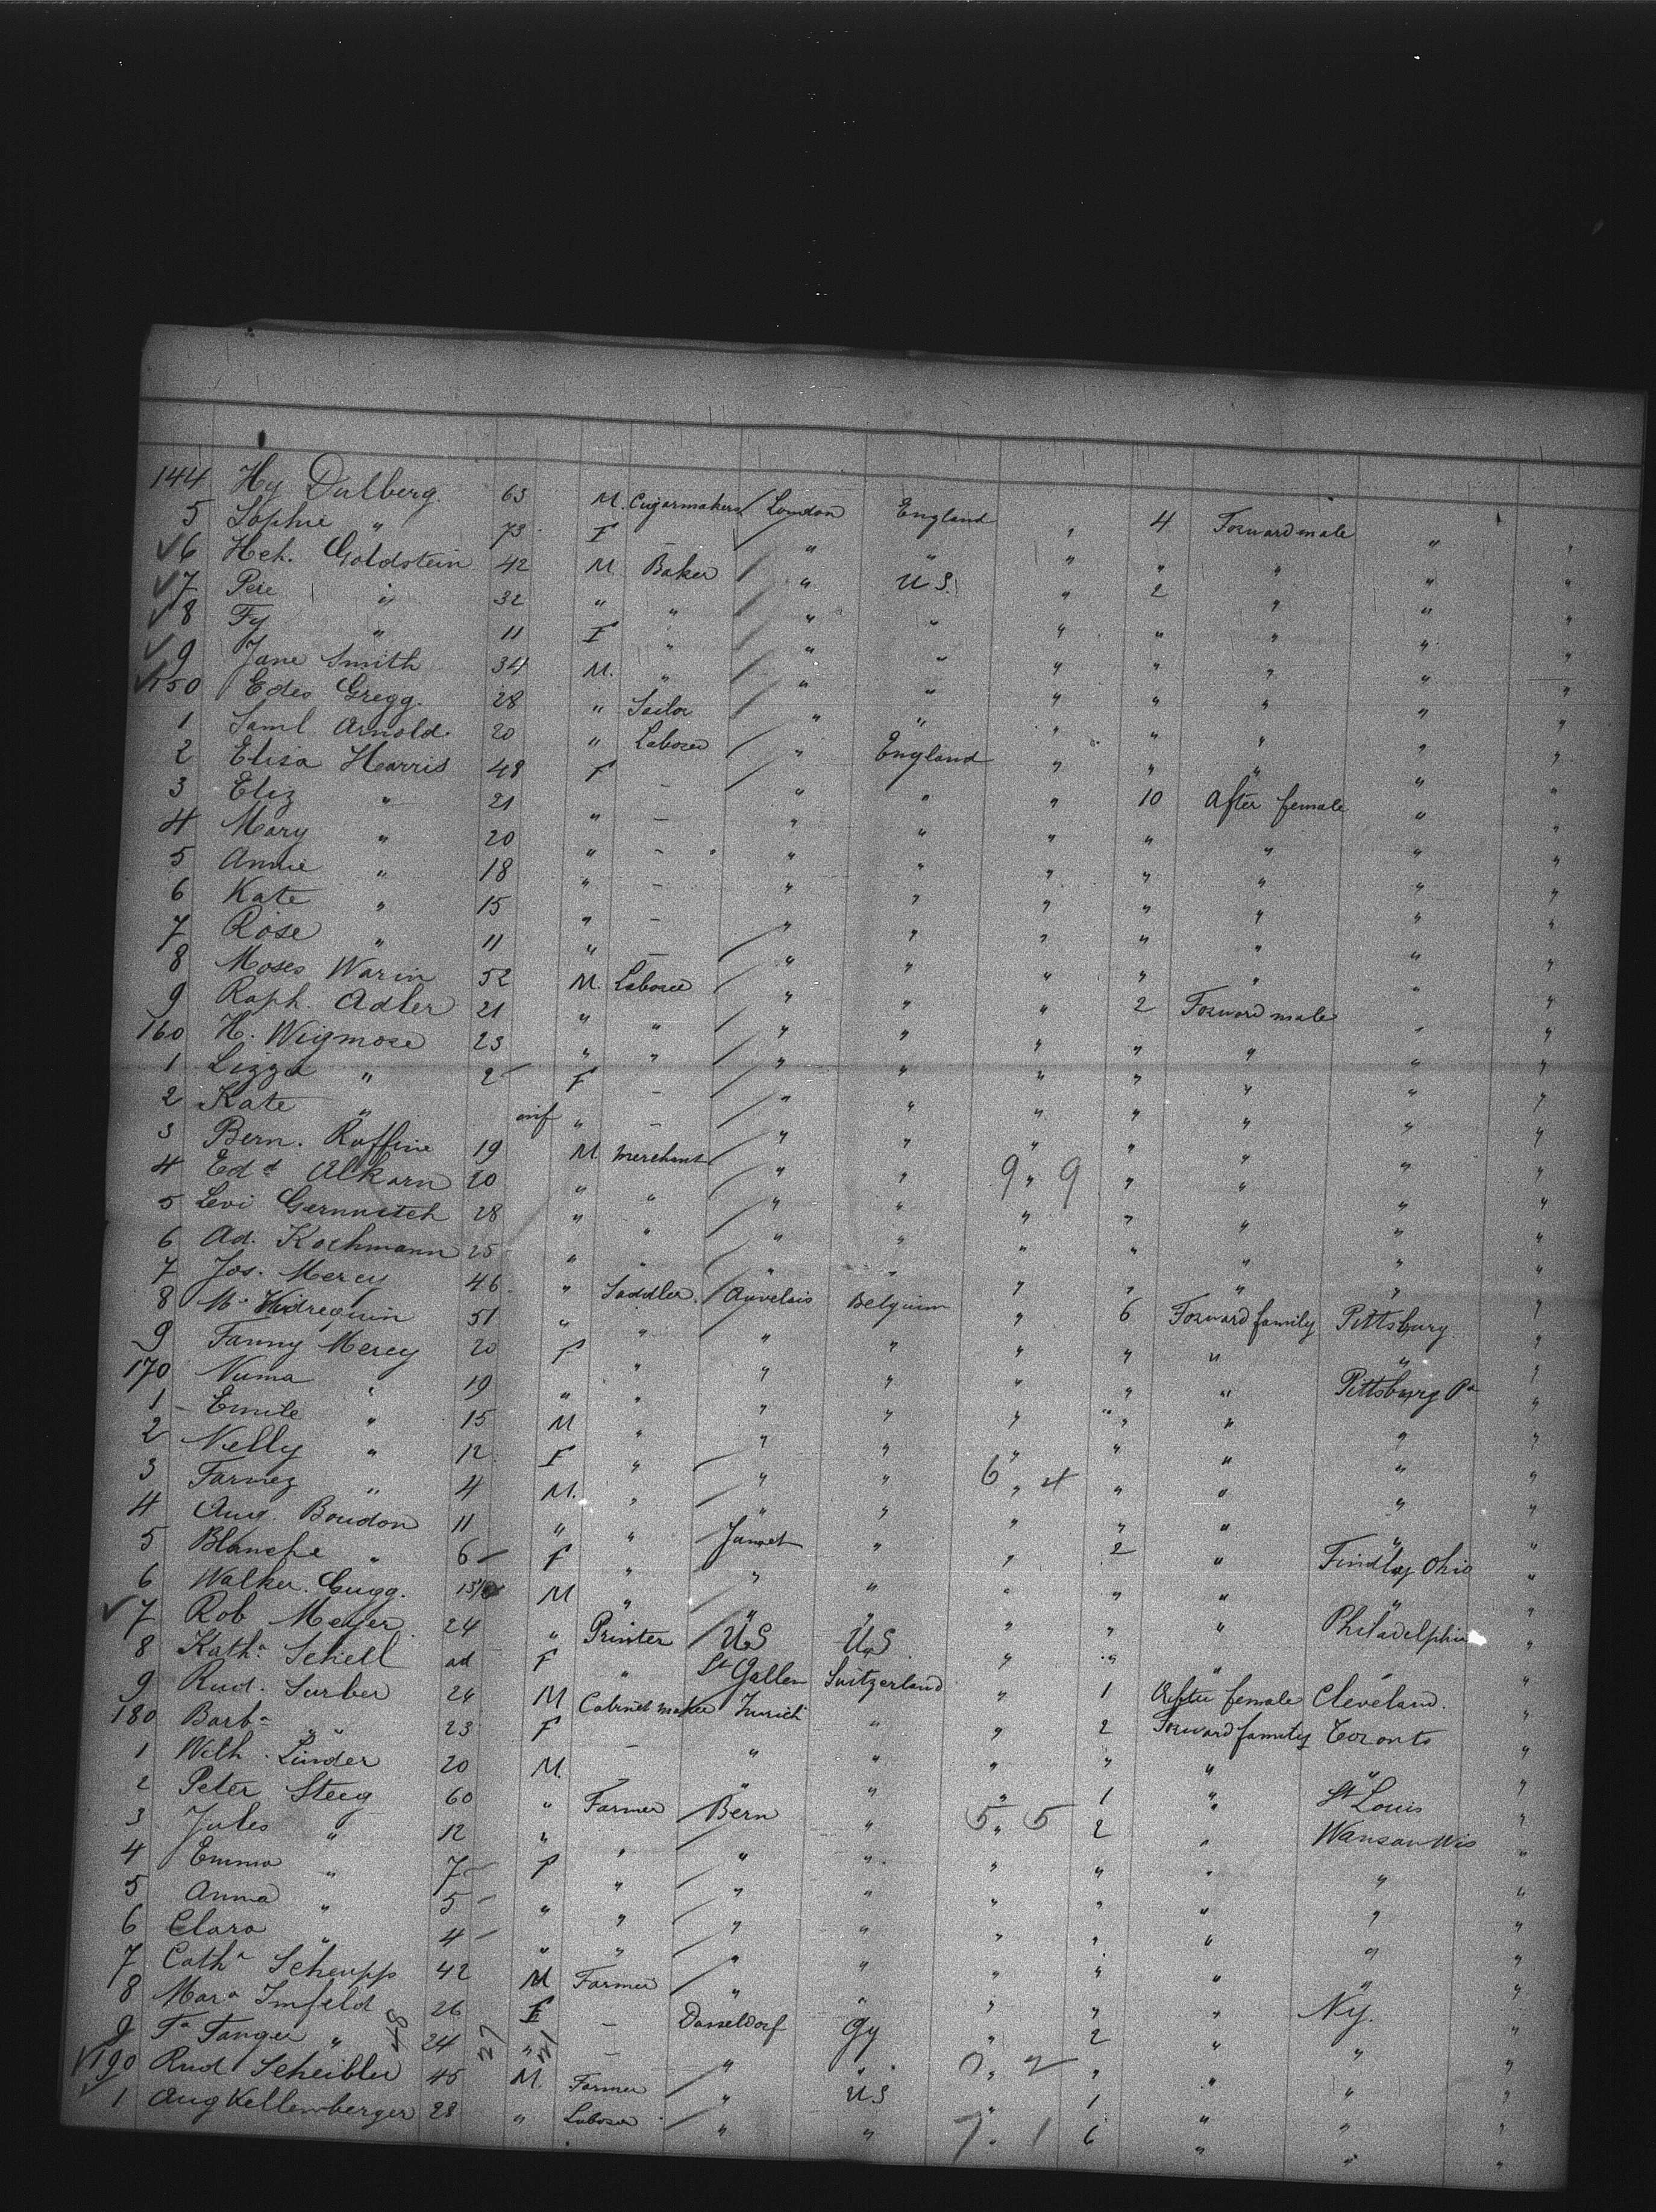 144 Hy Dalberg 63 M. Cigarmaker London England " 4 Forward male " "
5 Sophie " 73 F — " " " " " " "
6 Hch. Goldstein 42 M Baker " U.S. " 2 " " "
7 " 32 " " " " " " " " "
8 Fy " 11 F " " " " " " " "
9 Jane Smith 34 M. " " " " " " " "
150 Edes Gregg. 28 " Sailor " " " " " " "
1 Saml. Arnold 20 " Laborer " England " " " " "
2 Elisa Harris 48 F — " " " 10 After female " "
3 Eliz " 21 " — " " " " " " "
4 Mary " 20 " — " " " " " " "
5 Annie " 18 " — " " " " " " "
6 Kate " 15 " — " " " " " " "
7 Rose " 11 " — " " " " " " "
8 Moses Warin 52 M. Laborer " " " 2 Forward male " "
9 Raph. Adler 21 " " " " " " " " "
160 H. Wigmore 23 " " " " " " " " "
1 Lizza " 2 F — " " " " " " "
2 Kate " inf " — " " " " " " "
3 Bern. Ruffine 19 M Merchant " " 9 " 9 " " " "
4 Edd Alkarn 20 " " " " " " " " "
5 Levi 28 " " " " " " " " "
6 Ad. Kochmann 25 " " " " " " " " "
7 Jos. Mercy 46 " Saddler Auvelais Belgium " 6 Forward family Pittsburg "
8 M. 51 " " " " " " " " "
9 Fanny Mercy 20 F " " " " " " Pittsburg Pa "
170 Numa " 19 " " " " " " " " "
1 Emile " 15 M " " " " " " " "
2 Nelly " 12 F " " " 6 " 4 " " " "
3 " 4 M. " " " " " " " "
4 Aug. Boudon 11 " " Jumet " " 2 " Findlay Ohio "
5 Blanche " 6 F " " " " " " " "
6 Walker. Gugg. M " " " " " " Philadelphia "
7 Rob Meyer 24 " Printer U.S U.S. " " " " "
8 Katha Schell ad F " St Gallen Switzerland " 1 After female Cleveland. "
9 Rud. Surber 26 M Cabinet maker Zurich " " 2 Forward family Toronto "
180 Barba " 23 F — " " " " " " "
1 Wilh. Linder 20 M. — " " " 1 " St Louis "
2 Peter Steeg 60 " Farmer Bern " 5 " 5 2 " Wansau Wis "
3 Jules " 12 " " " " " " " " "
4 Emma " 7 F " " " " " " " "
5 Anna " 5 " " " " " " " " "
6 Clara " 4 " " " " " " " " "
7 Catha Scheupp 42 M Farmer " " " " " Ny. "
8 Mara Imfeld 26 F — Dusseldorf Gy " 2 " " "
9 Fa Tanger " 48 24 27 " 21 — " " " " " "
190 Rud Scheibler 45 M. Farmer " U.S " 1 " " "
1 Aug Kellemberger 28 " Laborer " " 7. 1 6 " " "